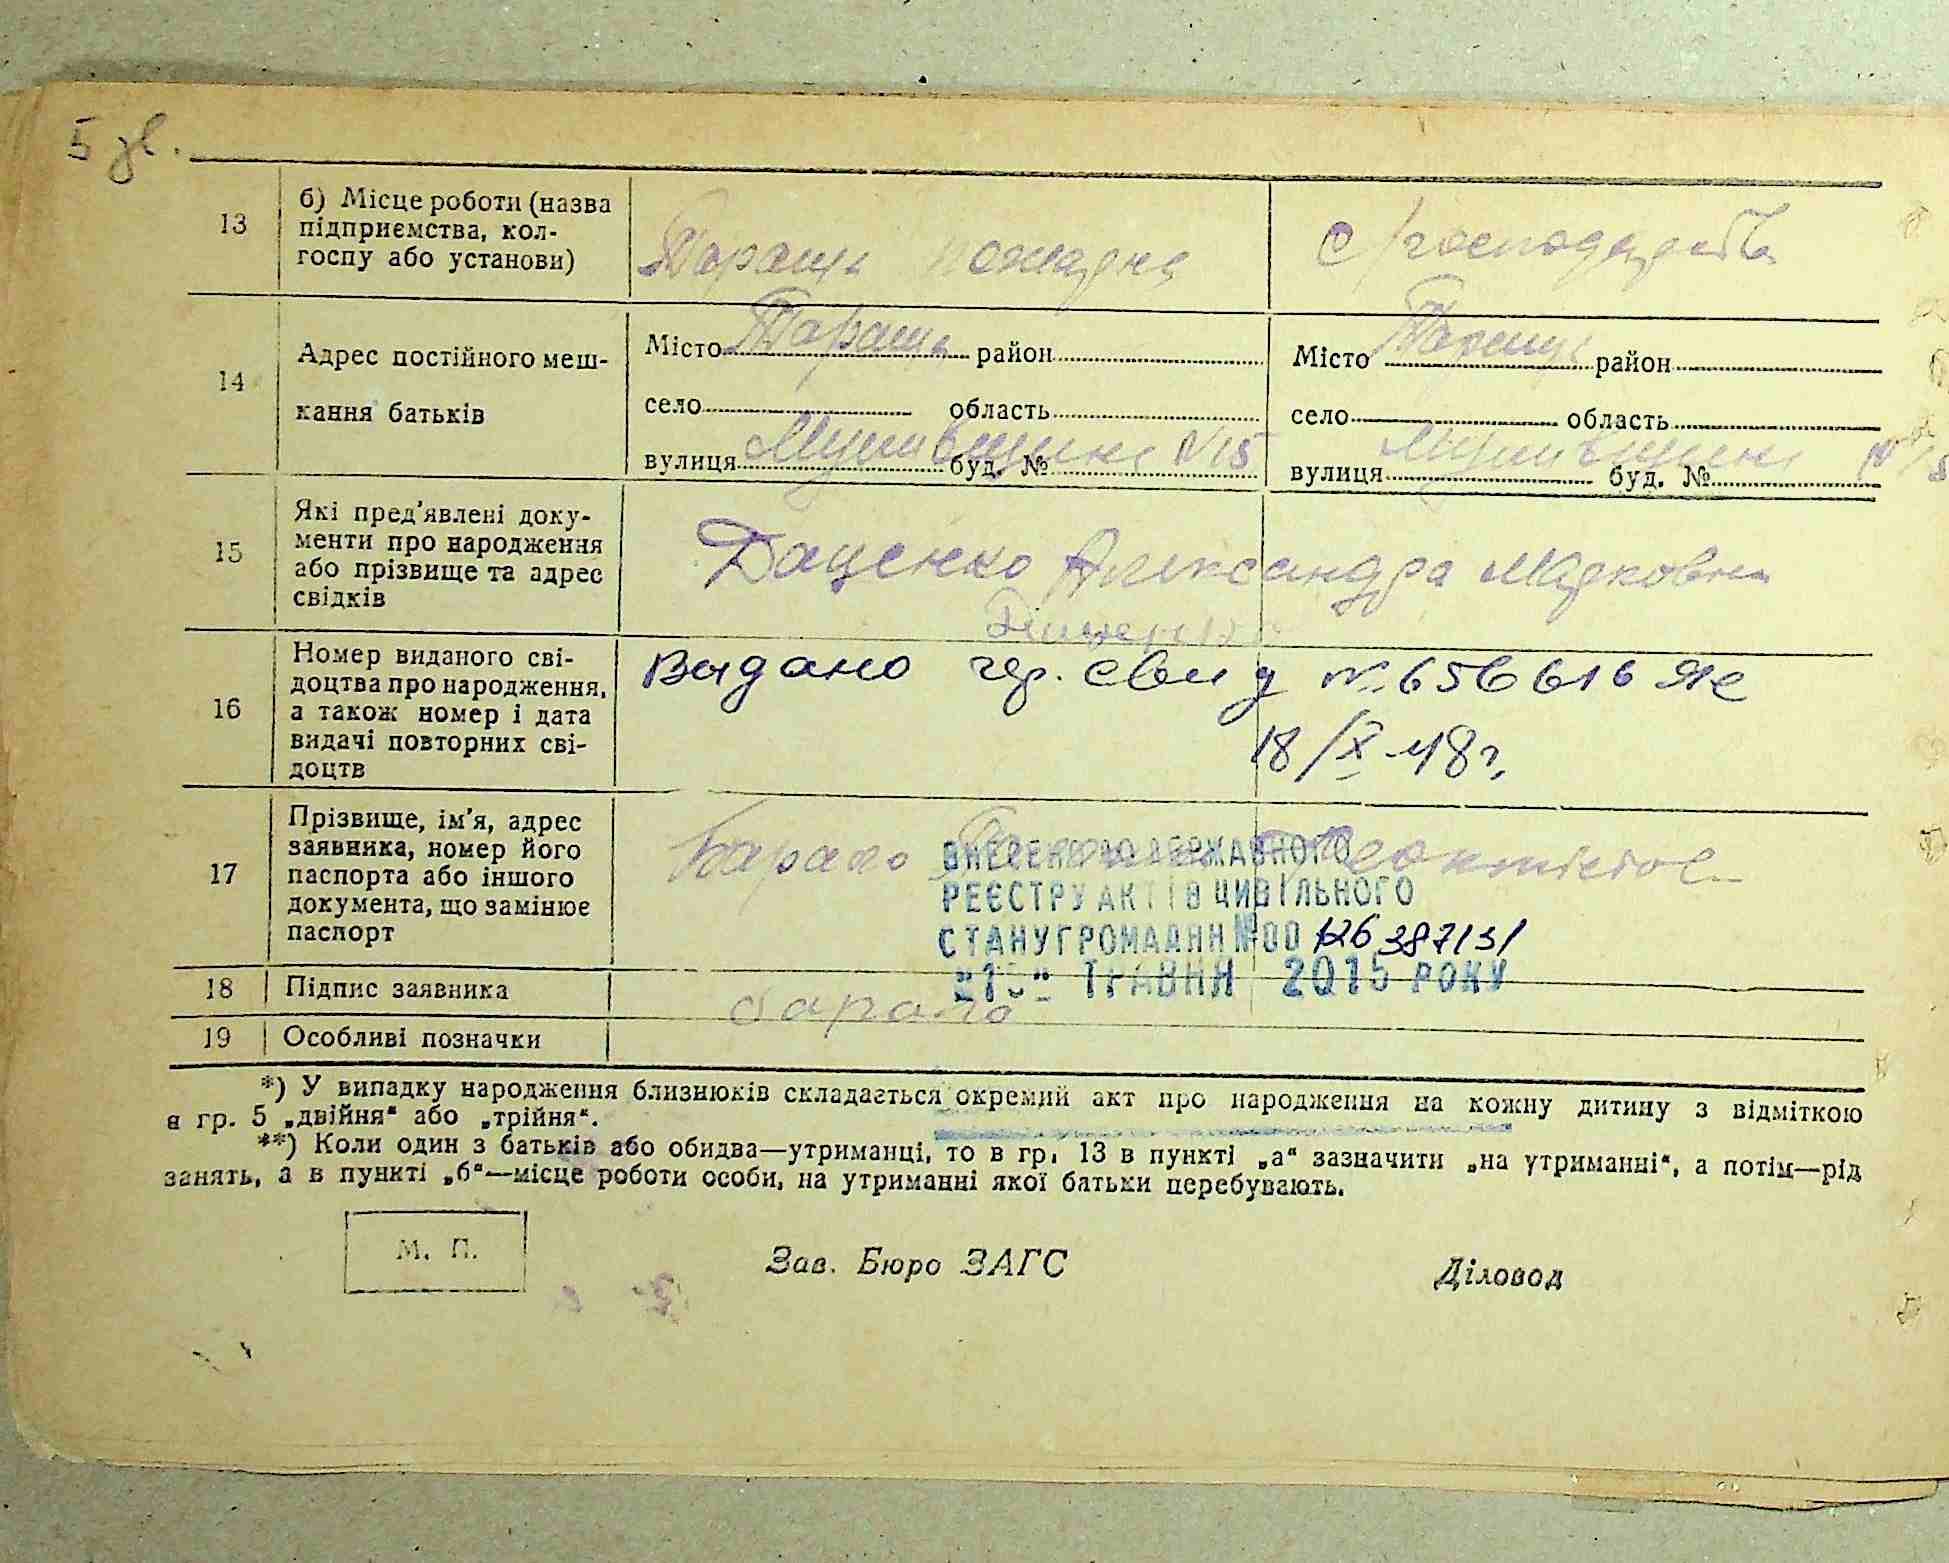 5 зв.
13
б) Місце роботи (назва
підприємства, кол-
госпу або установи)
Тараща пожарна
с/господарства
14
Адрес постійного меш-
кання батьків
Місто Тараща район
село область
вулиця буд. № N 15
Місто Тараща район
село область
вулиця буд. №
15
Які пред'явлені доку-
менти про народження
або прізвище та адрес
свідків
Даценко Александра Марковна
16
Номер виданого сві-
доцтва про народження,
а також номер і дата
видачі повторних сві-
доцтв
Видано N 656616
18/X 48 г.
17
Прізвище, ім'я, адрес
заявника, номер його
паспорта або іншого
документа, що замінює
паспорт
ВНЕСЕНО ДО ДЕРЖАВНОГО
РЕЄСТРУ АКТІВ ЦИВІЛЬНОГО
СТАНУ ГРОМАДЯН № 00126387131
ТРАВНЯ 2015 РОКУ
18
Підпис заявника
19
Особливі позначки
*) У випадку народження близнюків складається окремий акт про народження на кожну дитину з відміткою
в гр. 5 „двійня“ або „трійня“.
**) Коли один з батьків або обидва—утриманці, то в гр. 13 в пункті „а“ зазначити „на утриманні“, а потім—рід
занять, а в пункті „б“—місце роботи особи, на утриманні якої батьки перебувають.
М. П.
Зав. Бюро ЗАГС
Діловод